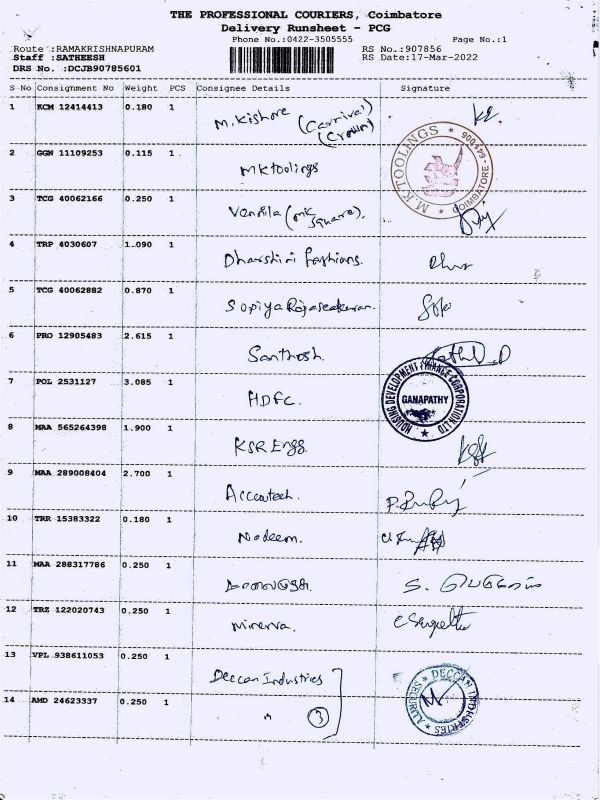 THE PROFESSIONAL COURIERS, Coimbatore
Delivery Runsheet - PCG
Phone No.:0422-3505555 Page No.:1
Route :RAMAKRISHNAPURAM RS No.:907856
Staff :SATHEESH RS Date:17-Mar-2022
DRS No. :DCJB90785601
S No Consignment No Weight PCS Consignee Details Signature
1 KCM 12414413 0.180 1 M.Kishore (Carnival Crown)
2 GGN 11109253 0.115 1 MK toolings
M.K TOOLINGS * COIMBATORE - 641 006 *
3 TCG 40062166 0.250 1 Vennila (MK Square).
4 TRP 4030607 1.090 1 Dharshini fashions.
5 TCG 40062882 0.870 1 Sopiya Rajasekaran.
6 PRO 12905483 2.615 1 Santhosh.
7 POL 2531127 3.085 1 HDFC.
HOUSING DEVELOPMENT FINANCE CORPORATION LTD
GANAPATHY
8 MAA 565264398 1.900 1 KSR Engg.
9 MAA 289008404 2.700 1 Accoutech.
10 TRR 15383322 0.180 1 Nadeem.
11 MAA 288317786 0.250 1
12 TRZ 122020743 0.250 1 Minerva.
13 VPL 938611053 0.250 1 Deccan Industries
14 AMD 24623337 0.250 1 " 3
DECCAN INDUSTRIES